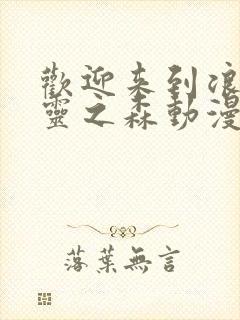 歡迎来到浪
靈之森動漫
落葉無言